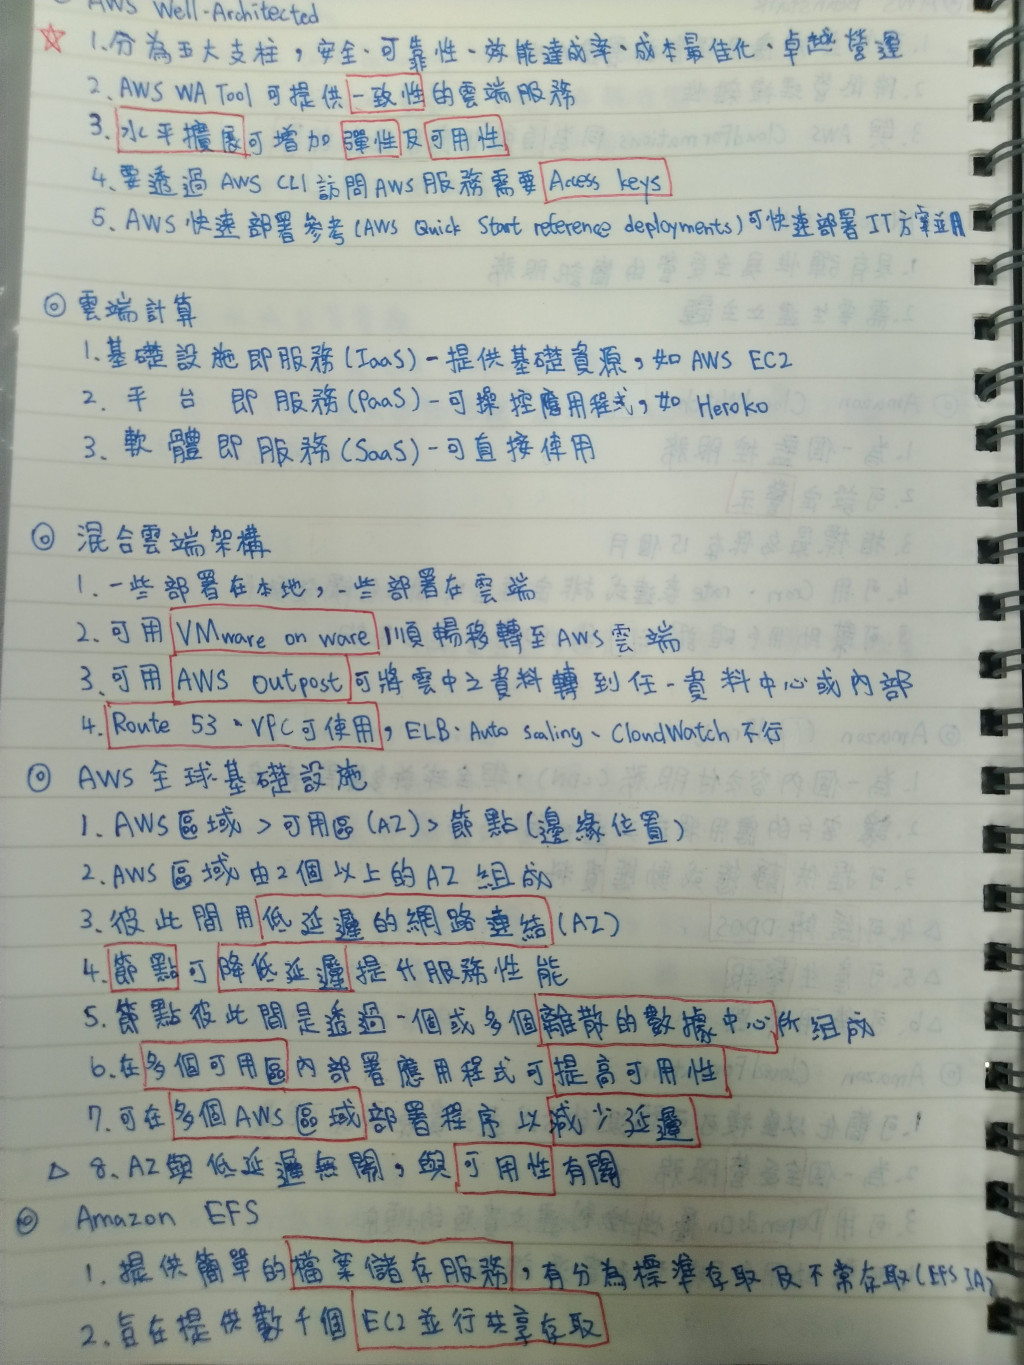 ◎ AWS Well-Architected
☆ 1. 分為五大支柱，安全、可靠性、效能達成率、成本最佳化、卓越營運
2. AWS WA Tool 可提供一致性的雲端服務
3. 水平擴展可增加彈性及可用性
4. 要透過 AWS CLI 訪問AWS服務需要 Access keys
5. AWS 快速部署參考(AWS Quick Start reference deployments)可快速部署 IT方案並用
◎ 雲端計算
1. 基礎設施即服務(IaaS)-提供基礎資源，如 AWS EC2
2. 平台即服務(PaaS)-可操控應用程式，如 Heroko
3. 軟體即服務(SaaS)-可直接使用
◎ 混合雲端架構
1. 一些部署在本地，一些部署在雲端
2. 可用 VMware on ware 順暢移轉至AWS雲端
3. 可用 AWS Outpost 可將雲中之資料轉到任一資料中心或內部
4. Route 53、VPC可使用，ELB、Auto scaling、CloudWatch 不行
◎ AWS 全球基礎設施
1. AWS區域 > 可用區(AZ) > 節點(邊緣位置)
2. AWS 區域由2個以上的AZ組成
3. 彼此間用低延遲的網路連結(AZ)
4. 節點可降低延遲提升服務性能
5. 節點彼此間是透過一個或多個離散的數據中心所組成
6. 在多個可用區內部署應用程式可提高可用性
7. 可在多個AWS區域部署程序以減少延遲
△ 8. AZ與低延遲無關，與可用性有關
◎ Amazon EFS
1. 提供簡單的檔案儲存服務，有分為標準存取及不常存取(EFS IA)
2. 旨在提供數千個 EC2並行共享存取